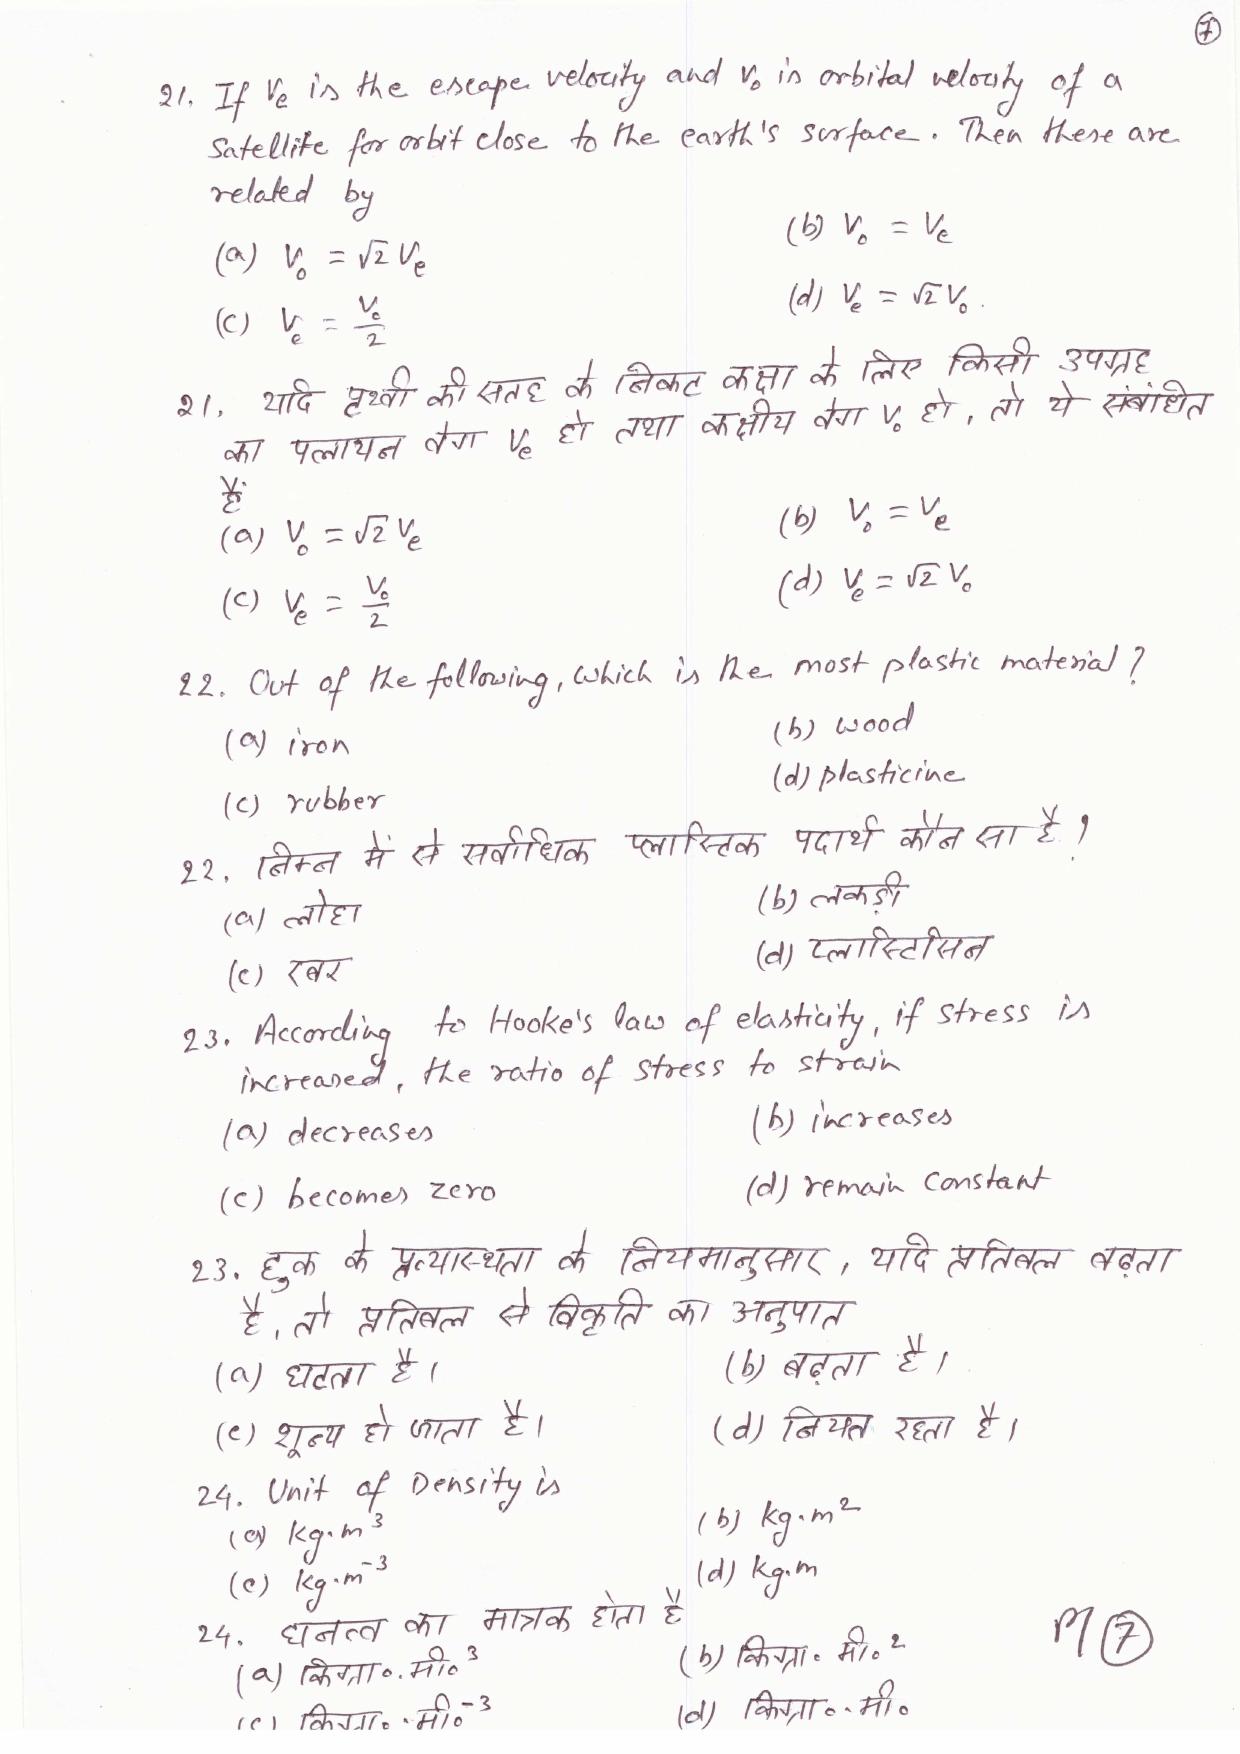 7
21. If Ve is the escape velocity and Vo is orbital velocity of a
Satellite for orbit close to the earth's surface. Then these are
related by
(a) Vo = √2 Ve
(b) Vo = Ve
(c) Ve = Vo/2
(d) Ve = √2 Vo.
21. यदि पृथ्वी की सतह के निकट कक्षा के लिए किसी उपग्रह
का पलायन वेग Ve हो तथा कक्षीय वेग Vo हो, तो ये संबंधित
हैं
(a) Vo = √2 Ve
(b) Vo = Ve
(c) Ve = Vo/2
(d) Ve = √2 Vo
22. Out of the following, which is the most plastic material?
(a) iron
(b) wood
(c) rubber
(d) plasticine
22. निम्न में से सर्वाधिक प्लास्टिक पदार्थ कौन सा है?
(a) लोहा
(b) लकड़ी
(c) रबर
(d) प्लास्टिसिन
23. According to Hooke's law of elasticity, if stress is
increased, the ratio of stress to strain
(a) decreases
(b) increases
(c) becomes zero
(d) remain constant
23. हुक के प्रत्यास्थता के नियमानुसार, यदि प्रतिबल बढ़ता
है, तो प्रतिबल से विकृति का अनुपात
(a) घटता है।
(b) बढ़ता है।
(c) शून्य हो जाता है।
(d) नियत रहता है।
24. Unit of Density is
(a) kg.m³
(b) kg.m²
(c) kg.m⁻³
(d) kg.m
24. घनत्व का मात्रक होता है
(a) किग्रा०.मी०³
(b) किग्रा०मी०²
(c) किग्रा०.मी०⁻³
(d) किग्रा०.मी०
M 7